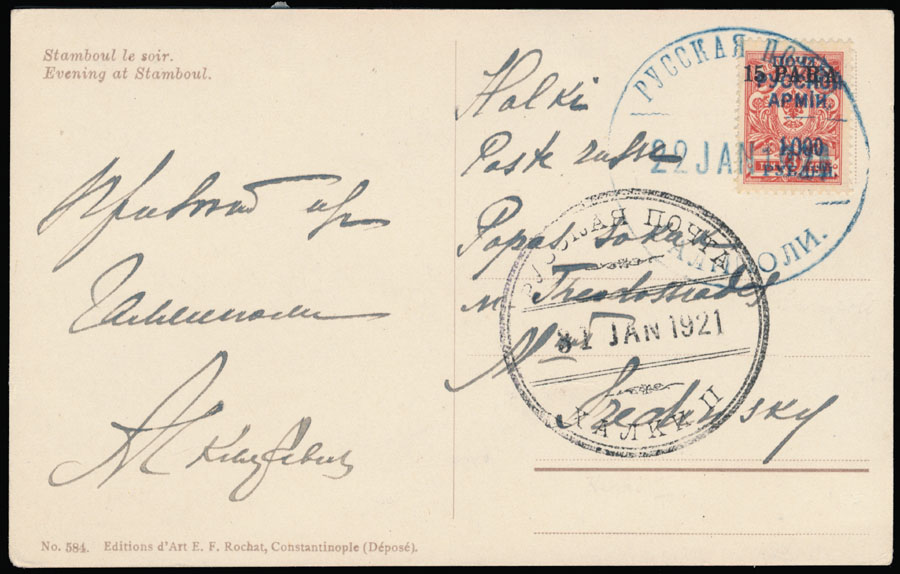 Stamboul le soir.
Evening at Stamboul.
Привет из
Галлиполи
Halki
Poste russe
Popas Sokak
M. Theodossiades
M
Sredinsky
РУССКАЯ
ГАЛЛИПОЛИ.
22 JAN 1921
15 PARA
ПОЧТА
РУССКОЙ
АРМІИ.
1000
РУБЛЕЙ.
РУССКАЯ ПОЧТА
31 JAN 1921
ХАЛКИ П
No. 584. Editions d'Art E. F. Rochat, Constantinople (Déposé).